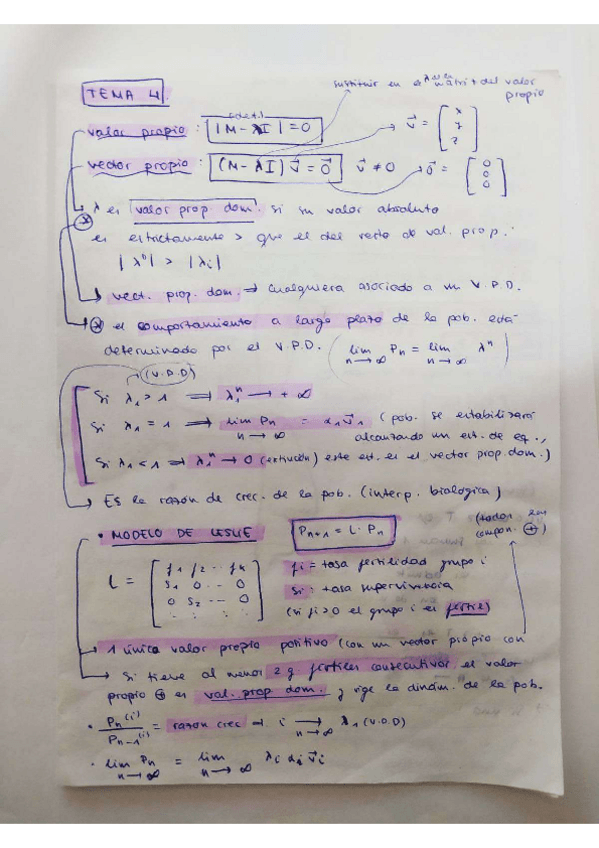 TEMA 4
sustituir en el λ de la matriz del valor propio
valor propio : |M-λI| = 0
v⃗ = [x y z]
vector propio : (M-λI) v⃗ = 0⃗ v⃗ ≠ 0 0⃗ = [0 0 0]
λ es valor prop. dom. si su valor absoluto
es estrictamente > que el del resto de val. prop.
|λⁿ| > |λi|
→ vect. prop. dom. → cualquiera asociado a un V.P.D.
⊛ el comportamiento a largo plazo de la pob. está
determinado por el V.P.D. (lim n→∞ Pn = lim n→∞ λⁿ)
(V.P.D)
Si λ1 > 1 ⇒ λ1ⁿ → + ∞
Si λ1 = 1 ⇒ lim n→∞ Pn = α1 v⃗1 (pob. se estabilizará
alcanzando un est. de eq.,
Si λ1 < 1 ⇒ λ1ⁿ → 0 (extinción) este est. es el vector prop. dom.)
→ Es la razón de crec. de la pob. (interp. biológica)
• MODELO DE LESLIE Pn+1 = L · Pn
(todas son compon. ⊕)
L = [f1 f2 ... fk
s1 0 ... 0
0 s2 ... 0
fi = tasa fertilidad grupo i
si = tasa supervivencia
(si fi>0 el grupo i es fértil)
→ 1 único valor propio positivo (con un vector propio con
→ Si tiene al menos 2 g fértiles consecutivos el valor
propio ⊕ es val. prop. dom. y rige la dinám. de la pob.
• Pn(i) / Pn-1(i) = razón crec → i n→∞ λ1 (V.P.D)
• lim n→∞ Pn = lim n→∞ λi αi v⃗i